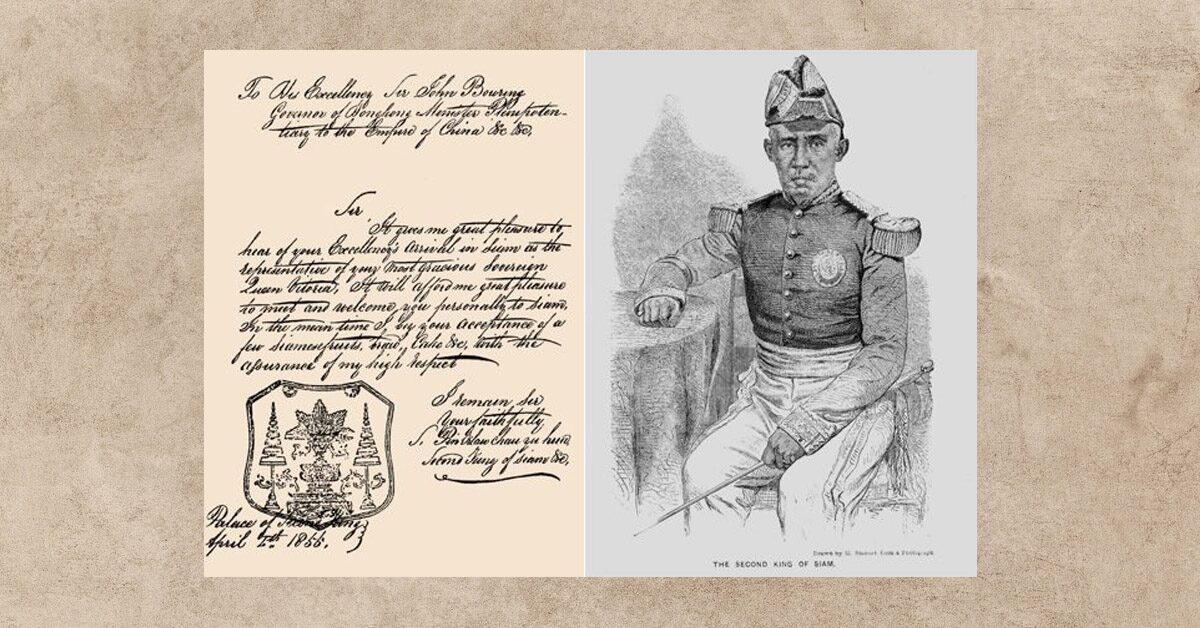 To His Excellency Sir John Bouring
Govenor of Hongkong Menister Plenepoten-
tiary to the Empire of China &c &c,
Sir
It gives me great pleasure to
hear of your Excellency's arrival in Siam as the
representative of your most gracious Sovereign
Queen Vitoria, It will afford me great pleasure
to meet and welcome you personally to Siam,
In the mean time I, beg your acceptance of a
few Siamese fruits, Cake &c, with the
assurance of my high respect
I remain, Sir
Your faithfully
S, Pin
Second King of Siam &c,
Palace of Second King
April 1855.
Drawn by from a Photograph
THE SECOND KING OF SIAM.